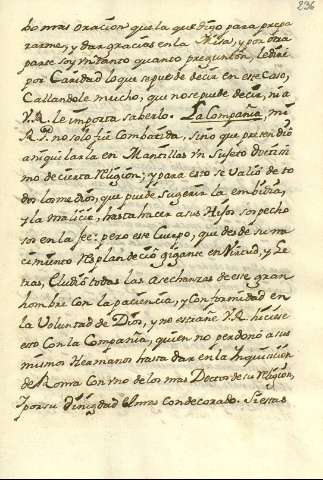 236
bo mas oracion que la que digo para prepa
rarme, y dar gracias en la Misa, y por otra
parte soy un tanto quanto pregunton, le diré
por Caridad lo que se puede decir en este Caso,
Callandole mucho, que no se puede decir, ni a
V.R. le importa saberlo. La Compañia, mi
R. P. no solo fué Combatida, sino que pretendió
aniquilarla en Mantillas Un Sujeto doctissi
mo de cierta Religion; y para esto se valió de to
dos los medios, que puede sugerir la embidia,
y la malicia, hasta hacer a sus Hijos sospecho
sos en la fee: pero este Cuerpo, que desde su na
cimiento resplandeció gigante en Virtud, y Le
tras, Eludió todas las Asechanzas de ese gran
hombre Con la paciencia, y Conformidad en
la Voluntad de Dios, y no estrañe V.R. hiciese
esto Con la Compañia, quien no perdonó a sus
mismos Hermanos hasta dar en la Inquisicion
de Roma Con uno de los mas Doctos de su Religion,
I por su dignidad el mas Condecorado. Si estas